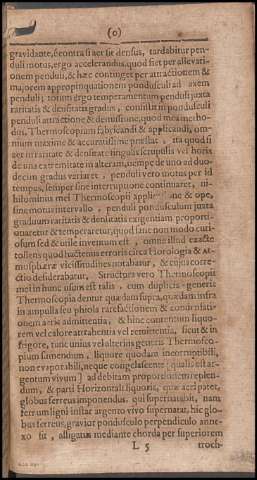 (o)
gravidante, è contra si aer sit densus, tardabitur pen-
duli motus, ergo accelerandus, quod fiet per allevati-
onem penduli, & hæc continget per attractionem &
majorem appropinquationem pondusculi ad axem
penduli; totum ergo temperamentum penduli juxta
raritatis & densitatis gradus, consistit in pondusculi
penduli attractione & demissione, quod mea metho-
dus, Thermoscopium fabricandi & applicandi, om-
nium maxime & accuratissime præstat, ita quod si
aer in raritate & densitate singulis scrupulis vel horis
de una extremitate in alteram, nempe de uno ad duo-
decim gradus variaret, penduli vero motus per id
tempus, semper sine intervptione continuaret, ni-
hilominus mei Thermoscopii & ope,
sine motus intervallo, penduli pondusculum juxta
graduum raritatis & densitatis exigentiam proporti-
onaretur & temperaretur, quod sane non modo curi-
osum sed & utile inventum est, omne illud exacte
tollens quod hactenus erroris circa Horologia & At-
mosphæræ vicissitudines notabatur, & cujus corre-
ctio desiderabatur. Structura vero Thermoscopii
mei in hunc usum est talis, cum duplicis generis
Thermoscopia dentur quædam supra, quædam infra
in ampulla seu phiola rarefactionem & condensati-
onem aeris admittentia, & hinc contentum liquo-
rem vel calore attrahentia vel remittentia, sicut & in
frigore, tunc unius vel alterius generis Thermosco-
pium sumendum, liquore quodam incorruptibili,
non evaporabili, neque congelascente (qualis est ar-
gentum vivum) ad debitam proportionem replen-
dum, & parti Horizontali liquoris, quæ aeri patet,
globus ferreus imponendus, qui supernatabit, nam
ferrum ligni instar argento vivo supernatat, hic glo-
bus ferreus, gravior pondusculo perpendiculo anne-
xo sit, alligatus mediante chorda per superiorem
L 5 troch-